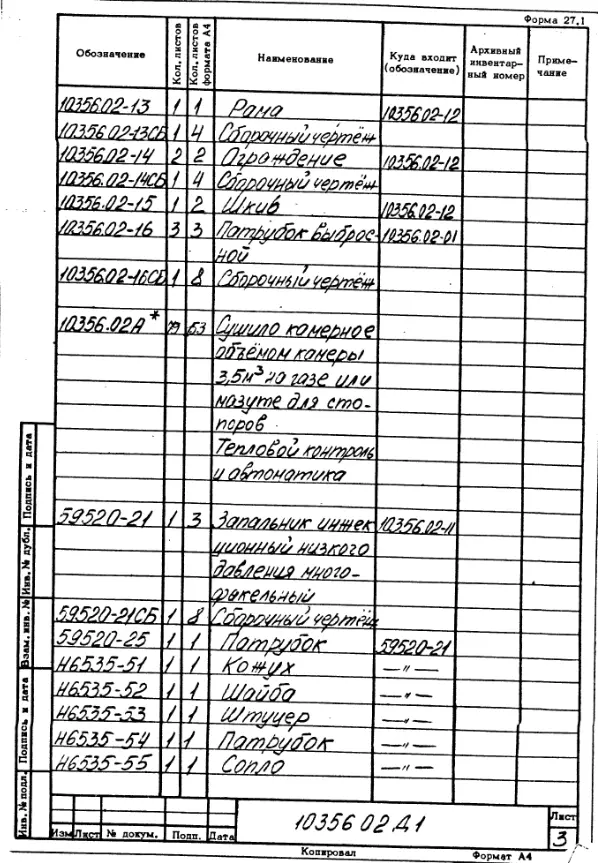 Форма 27.1
Обозначение | Кол. листов | Кол. листов формата А4 | Наименование | Куда входит (обозначение) | Архивный инвентарный номер | Примечание
10356.02-13 1 1 Рама 10356.02-12
10356.02-13СБ 1 4 Сборочный чертёж
10356.02-14 2 2 Ограждение 10356.02-12
10356.02-14СБ 1 4 Сборочный чертёж
10356.02-15 1 2 Шкив 10356.02-12
10356.02-16 3 3 Патрубок выброс- 10356.02-01
ной
10356.02-16СБ 1 8 Сборочный чертёж
10356.02А* 63 Сушило камерное
объёмом камеры
3,5м³ на газе или
мазуте для сто-
поров
Тепловой контроль
и автоматика
59520-21 1 3 Запальник инжек 10356.02-11
ционный низкого
давления много-
факельный
59520-21СБ 1 8 Сборочный чертёж
59520-25 1 1 Патрубок 59520-21
Н6535-51 1 1 Кожух —〃—
Н6535-52 1 1 Шайба —〃—
Н6535-53 1 1 Штуцер —〃—
Н6535-54 1 1 Патрубок —〃—
Н6535-55 1 1 Сопло —〃—
Инв. № подл. Подпись и дата Взам. инв. № Инв. № дубл. Подпись и дата
Изм Лист № докум. Подп. Дата
10356 02 Д1
Лист
3
Копировал Формат А4